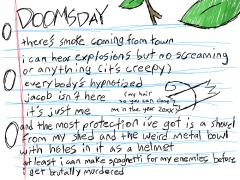 DOOMSDAY
there's smoke coming from town
i can hear explosions but no screaming
or anything (it's creepy)
everybody's hypnotized
jacob isn't here
it's just me
(my hair
so you can clone
me in the year 20XX)
and the most protection i've got is a shovel
from my shed and the weird metal bowl
with holes in it as a helmet
at least i can make spaghetti for my enemies before
i get brutally murdered